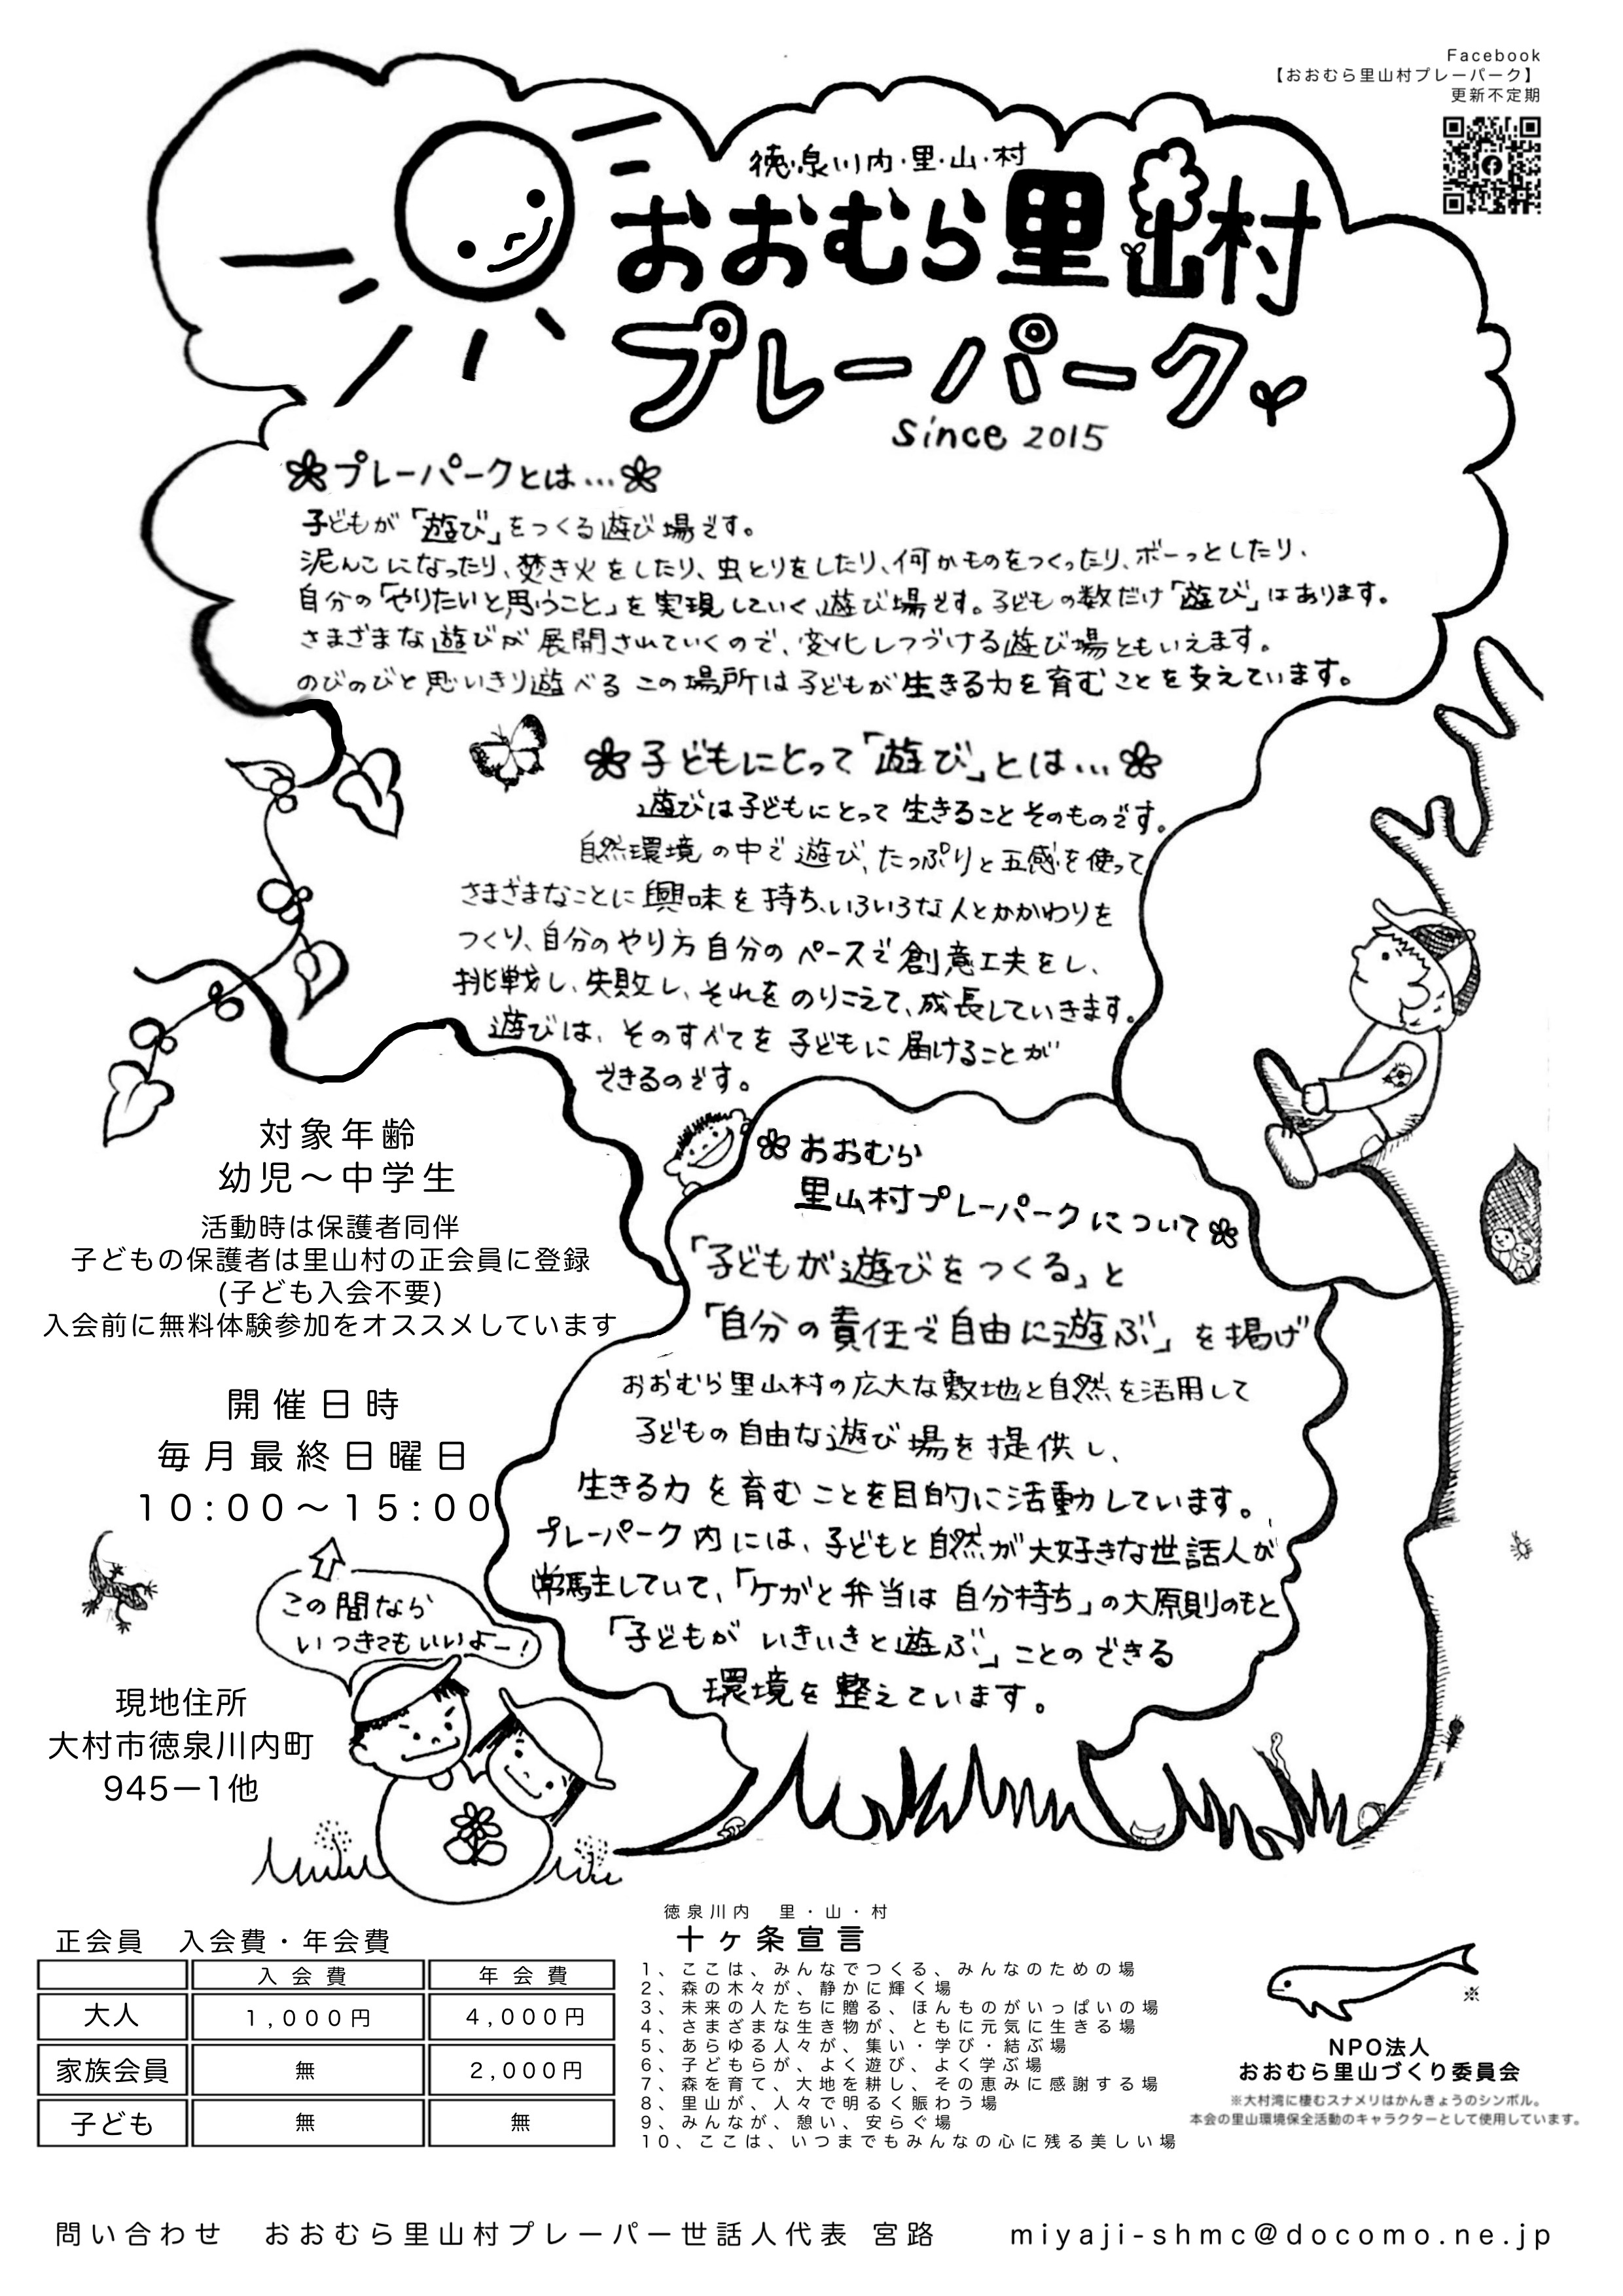 Facebook
【おおむら里山村プレーパーク】
更新不定期
徳泉川内・里・山・村
おおむら里山村
プレーパーク
since 2015
プレーパークとは…
子どもが「遊び」をつくる遊び場です。
泥んこになったり、焚き火をしたり、虫とりをしたり、何かものをつくったり、ボーっとしたり、
自分の「やりたいと思うこと」を実現していく遊び場です。子どもの数だけ「遊び」はあります。
さまざまな遊びが展開されていくので、変化しつづける遊び場ともいえます。
のびのびと思いきり遊べるこの場所は子どもが生きる力を育むことを支えています。
子どもにとって「遊び」とは…
遊びは子どもにとって生きることそのものです。
自然環境の中で遊び、たっぷりと五感を使って
さまざまなことに興味を持ち、いろいろな人とかかわりを
つくり、自分のやり方自分のペースで創意工夫をし、
挑戦し、失敗し、それをのりこえて、成長していきます。
遊びは、そのすべてを子どもに届けることが
できるのです。
対象年齢
幼児～中学生
活動時は保護者同伴
子どもの保護者は里山村の正会員に登録
(子ども入会不要)
入会前に無料体験参加をオススメしています
開催日時
毎月最終日曜日
10:00～15:00
この間なら
いつきてもいいよー!
現地住所
大村市徳泉川内町
945ー1他
おおむら
里山村プレーパークについて
「子どもが遊びをつくる」と
「自分の責任で自由に遊ぶ」を掲げ
おおむら里山村の広大な敷地と自然を活用して
子どもの自由な遊び場を提供し、
生きる力を育むことを目的に活動しています。
プレーパーク内には、子どもと自然が大好きな世話人が
常駐していて、「ケガと弁当は自分持ち」の大原則のもと
「子どもがいきいきと遊ぶ」ことのできる
環境を整えています。
正会員　入会費・年会費
入会費　年会費
大人　1,000円　4,000円
家族会員　無　2,000円
子ども　無　無
徳泉川内　里・山・村
十ヶ条宣言
1、ここは、みんなでつくる、みんなのための場
2、森の木々が、静かに輝く場
3、未来の人たちに贈る、ほんものがいっぱいの場
4、さまざまな生き物が、ともに元気に生きる場
5、あらゆる人々が、集い・学び・結ぶ場
6、子どもらが、よく遊び、よく学ぶ場
7、森を育て、大地を耕し、その恵みに感謝する場
8、里山が、人々で明るく賑わう場
9、みんなが、憩い、安らぐ場
10、ここは、いつまでもみんなの心に残る美しい場
※
NPO法人
おおむら里山づくり委員会
※大村湾に棲むスナメリはかんきょうのシンボル。
本会の里山環境保全活動のキャラクターとして使用しています。
問い合わせ　おおむら里山村プレーパー世話人代表 宮路　miyaji-shmc@docomo.ne.jp